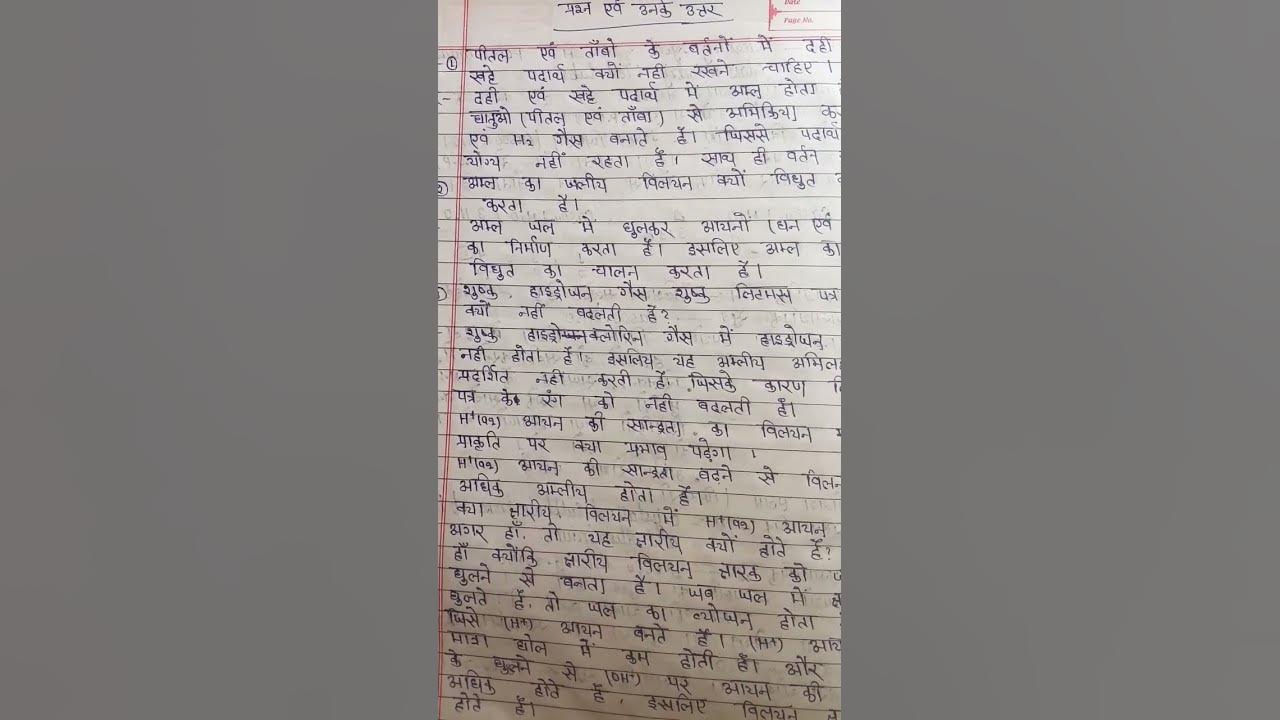 Date
Page No.
प्रश्न एवं उनके उत्तर
① पीतल एवं ताँबो के बर्तनों में दही
खट्टे पदार्थ क्यों नही रखने चाहिए।
दही एवं खट्टे पदार्थ में अम्ल होता
धातुओ (पीतल एवं ताँबा) से अभिक्रिया
एवं H2 गैस बनाते हैं। जिससे पदार्थ
योग्य नहीं रहता है। साथ ही बर्तन
② अम्ल का जलीय विलयन क्यों विधुत
करता है।
अम्ल जल में घुलकर आयनों (धन एवं
का निर्माण करता है। इसलिए अम्ल का
विधुत का चालन करता है।
शुष्क हाइड्रोजन गैस शुष्क लिटमस पत्र
क्यों नहीं बदलती है?
शुष्क हाइड्रोजनक्लोरिन गैस में हाइड्रोजन
नही होता है। इसलिय यह अम्लीय
प्रदर्शित नही करती है जिसके कारण
पत्र के रंग को नही बदलती है।
H+(aq) आयन की सान्द्रता का विलयन
प्राकृति पर क्या प्रभाव पड़ेगा।
H+(aq) आयन की सान्द्रता बढ़ने से
अधिक अम्लीय होता है।
क्या क्षारीय विलयन में H+(aq) आयन
अगर हाँ, तो यह क्षारीय क्यों होते है?
हाँ क्योंकि क्षारीय विलयन क्षारक को
घुलने से बनता है। जब जल में
घुलते है, तो जल का व्योजन होता
जिसे (H+) आयन बनते है। (H+)
मात्रा घोल में कम होती है। और
के घुलने से पर आयन की
अधिक होते है, इसलिए विलयन
होते है।